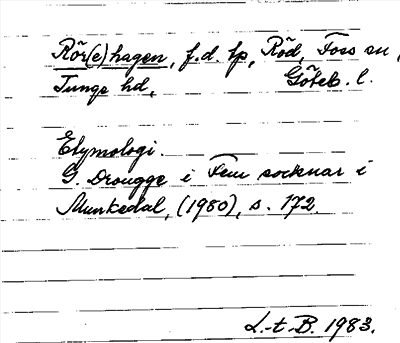 Rör(e)hagen, f.d. lp, Röd, Foss sn,
Tunge hd, Göteb. l.
Etymologi.
G. Drougge i Fem socknar i
Munkedal, (1980), s. 172.
L.-t B. 1983.